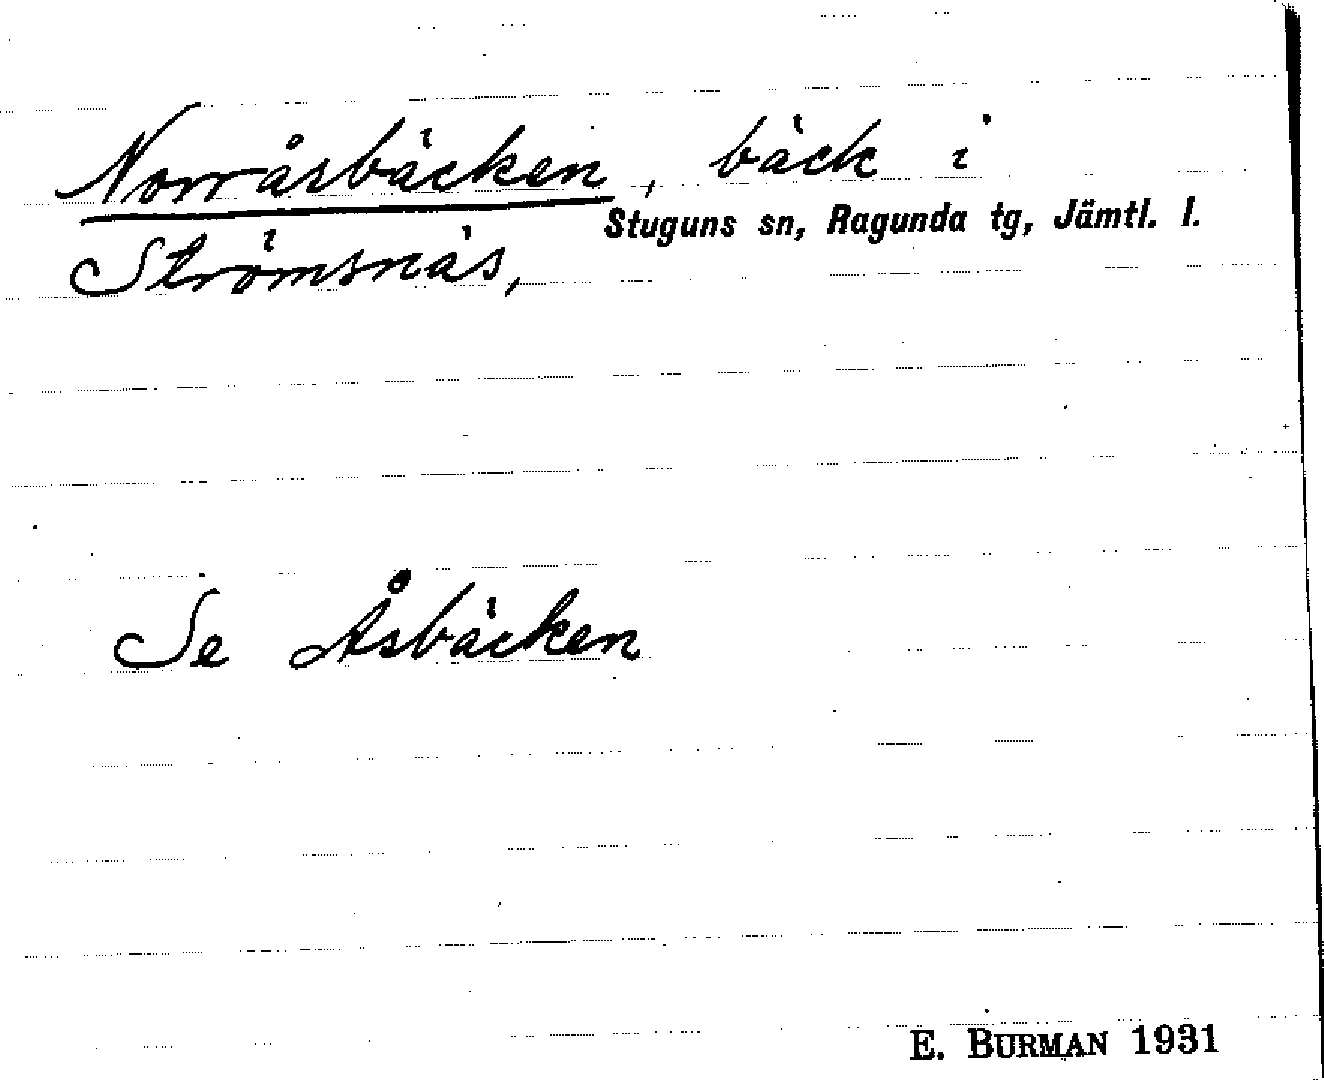 Norråsbäcken, bäck i
Strömsnäs, Stuguns sn, Ragunda tg, Jämtl. l.
Se Åsbäcken
E. BURMAN 1931